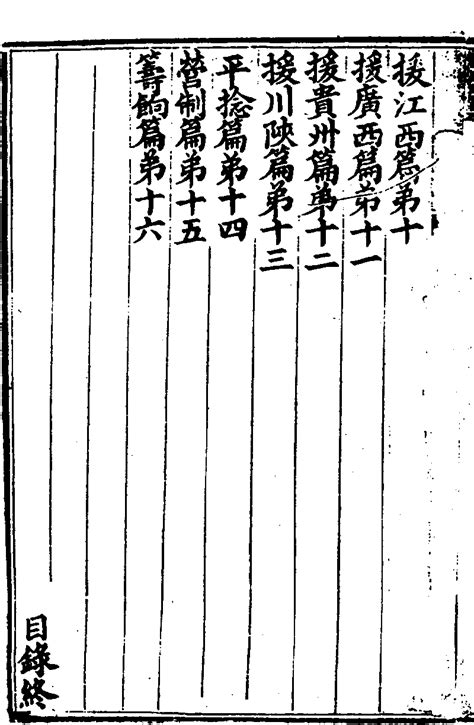 援江西篇弟十
援廣西篇弟十一
援貴州篇弟十二
援川陝篇弟十三
平捻篇弟十四
營制篇弟十五
籌餉篇弟十六
目錄終